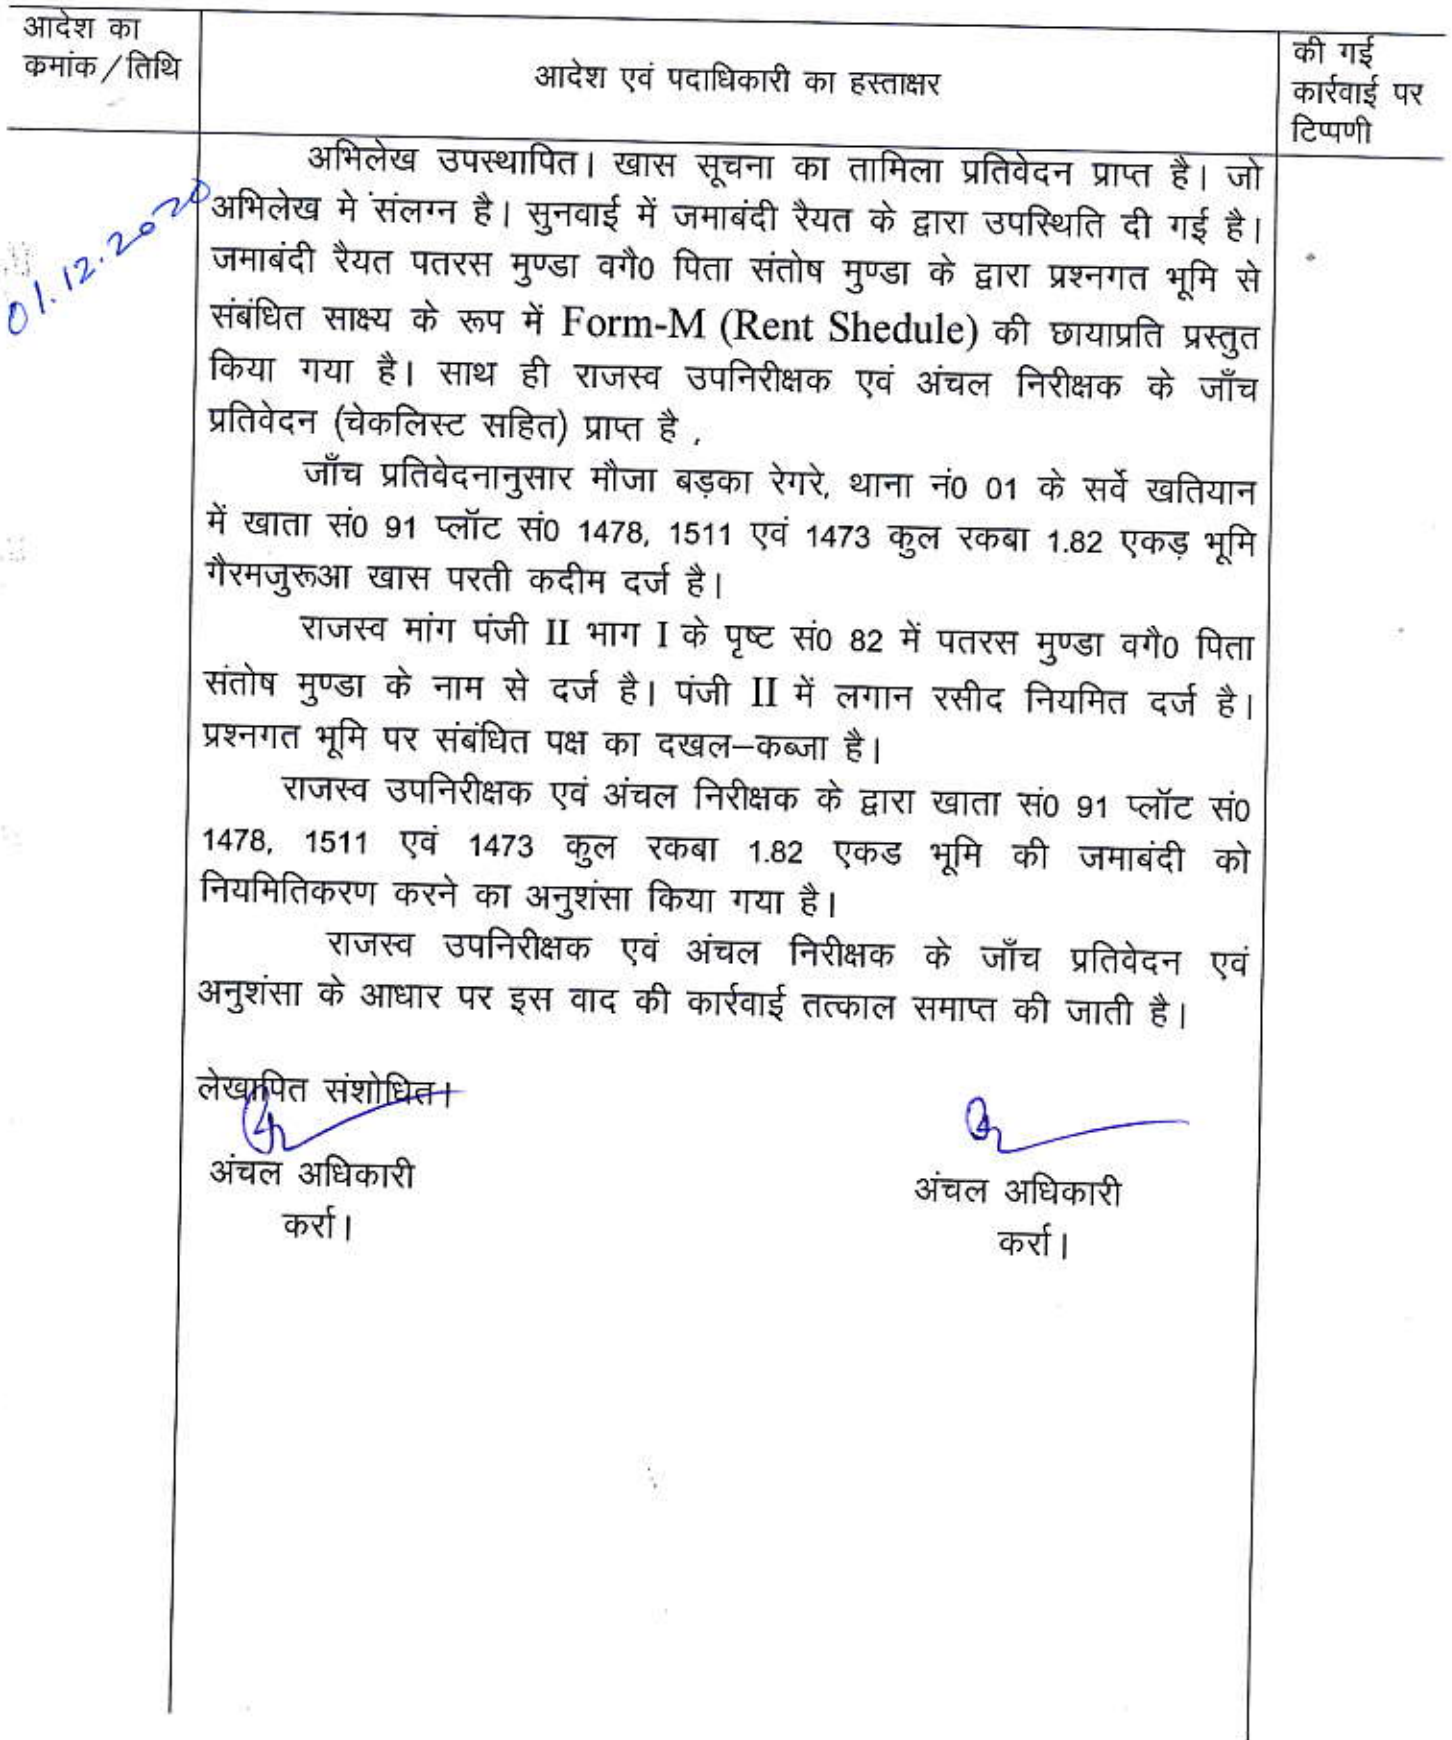 आदेश का
कमांक/तिथि
आदेश एवं पदाधिकारी का हस्ताक्षर
की गई
कार्रवाई पर
टिप्पणी
01.12.2020
अभिलेख उपस्थापित। खास सूचना का तामिला प्रतिवेदन प्राप्त है। जो
अभिलेख मे संलग्न है। सुनवाई में जमाबंदी रैयत के द्वारा उपस्थिति दी गई है।
जमाबंदी रैयत पतरस मुण्डा वगै0 पिता संतोष मुण्डा के द्वारा प्रश्नगत भूमि से
संबंधित साक्ष्य के रूप में Form-M (Rent Shedule) की छायाप्रति प्रस्तुत
किया गया है। साथ ही राजस्व उपनिरीक्षक एवं अंचल निरीक्षक के जाँच
प्रतिवेदन (चेकलिस्ट सहित) प्राप्त है ,
जाँच प्रतिवेदनानुसार मौजा बड़का रेगरे, थाना नं0 01 के सर्वे खतियान
में खाता सं0 91 प्लॉट सं0 1478, 1511 एवं 1473 कुल रकबा 1.82 एकड़ भूमि
गैरमजुरूआ खास परती कदीम दर्ज है।
राजस्व मांग पंजी II भाग I के पृष्ट सं0 82 में पतरस मुण्डा वगै0 पिता
संतोष मुण्डा के नाम से दर्ज है। पंजी II में लगान रसीद नियमित दर्ज है।
प्रश्नगत भूमि पर संबंधित पक्ष का दखल–कब्जा है।
राजस्व उपनिरीक्षक एवं अंचल निरीक्षक के द्वारा खाता सं0 91 प्लॉट सं0
1478, 1511 एवं 1473 कुल रकबा 1.82 एकड भूमि की जमाबंदी को
नियमितिकरण करने का अनुशंसा किया गया है।
राजस्व उपनिरीक्षक एवं अंचल निरीक्षक के जाँच प्रतिवेदन एवं
अनुशंसा के आधार पर इस वाद की कार्रवाई तत्काल समाप्त की जाती है।
लेखापित संशोधित।
अंचल अधिकारी
कर्रा।
अंचल अधिकारी
कर्रा।